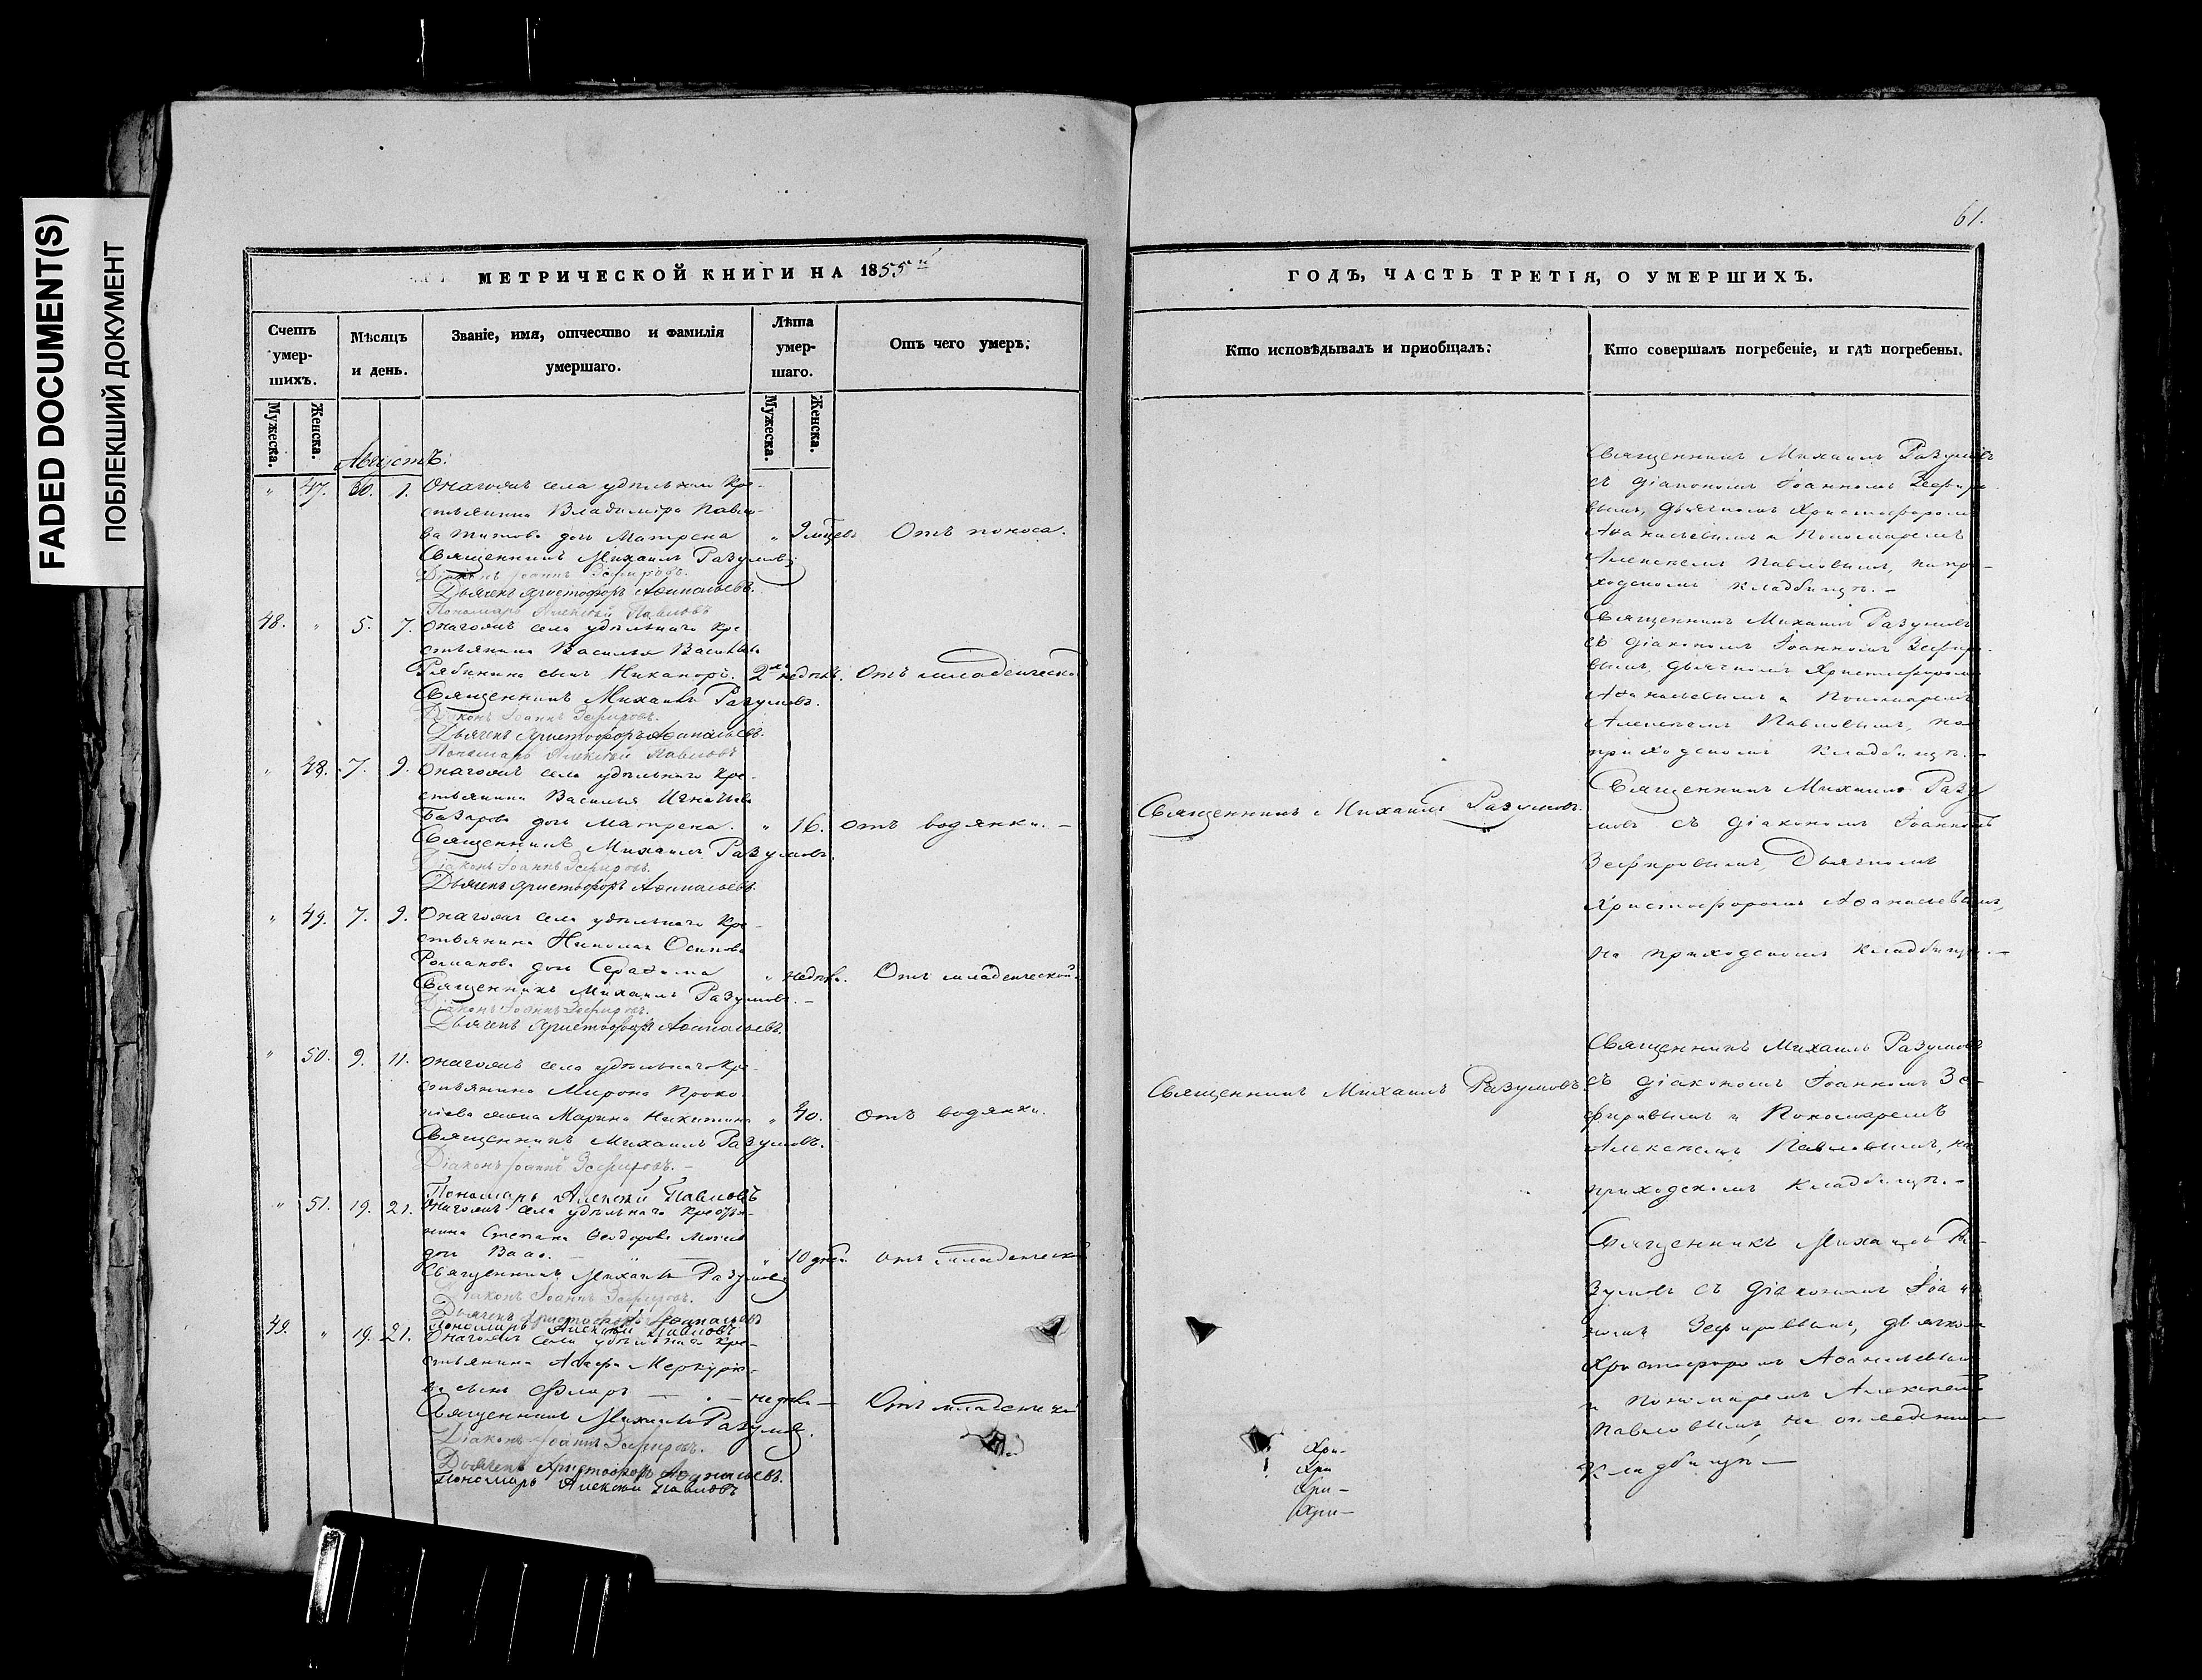 FADED DOCUMENT(S)
ПОБЛЕКШИЙ ДОКУМЕНТ
МЕТРИЧЕСКОЙ КНИГИ НА 1855й
Счетъ умершихъ.
Мужеска.
Женска.
Мѣсяцъ и день.
Званіе, имя, отчество и фамилія
умершаго.
Лѣта умершаго.
Мужеска.
Женска.
Отъ чего умеръ.
Августъ.
" 47. 30. 1. Онагожъ села удѣльнаго кре-
стьянина Владиміра Павло-
ва Титова дочь Матрена " 9 мцевъ Отъ поноса.
Священникъ Михаилъ Разумовъ
Діаконъ Іоаннъ Зефировъ.
Дьячекъ Христофоръ Аѳанасьевъ.
Пономарь Алексѣй Павловъ
48. " 5. 7. Онагожъ села удѣльнаго кре
стьянина Василья Васильева
Рябинина сынъ Никаноръ. 2хъ недѣль. Отъ младенческой
Священникъ Михаилъ Разумовъ.
Діаконъ Іоаннъ Зефировъ.
Дьячекъ Христофоръ Аѳанасьевъ.
Пономарь Алексѣй Павловъ
" 48. 7. 9. Онагожъ села удѣльнаго кре-
стьянина Василья Игнатьева
дочь Матрена. " 16. отъ водянки. –
Священникъ Михаилъ Разумовъ.
Діаконъ Іоаннъ Зефировъ.
Дьячекъ Христофоръ Аѳанасьевъ.
" 49. 7. 9. Онагожъ села удѣльнаго кре-
стьянина Николая Осипова
Романова дочь Серафима " недѣли. Отъ младенческой.
Священникъ Михаилъ Разумовъ. –
Діаконъ Іоаннъ Зефировъ.
Дьячекъ Христофоръ Аѳанасьевъ.
" 50. 9. 11. Онагожъ села удѣльнаго кре-
стьянина Мирона Проко-
піева жена Марина Никитина " 40. отъ водянки.
Священникъ Михаилъ Разумовъ.
Діаконъ Іоаннъ Зефировъ. –
Пономарь Алексѣй Павловъ
" 51. 19. 21. Онагожъ села удѣльнаго крестья-
нина Степана Ѳеодорова
дочь " 10 дней. отъ младенческой
Священникъ Михаилъ Разумовъ
Діаконъ Іоаннъ Зефировъ.
Дьячекъ Христофоръ Аѳанасьевъ
Пономарь Алексѣй Павловъ
49. " 19. 21. Онагожъ села удѣльнаго кре-
стьянина Меркурье-
ва сынъ Флоръ – недѣли – Отъ младенческой
Священникъ Михаилъ Разумовъ.
Діаконъ Іоаннъ Зефировъ.
Дьячекъ Христофоръ Аѳанасьевъ.
Пономарь Алексѣй Павловъ
61.
ГОДЪ, ЧАСТЬ ТРЕТІЯ, О УМЕРШИХЪ.
Кто исповѣдывалъ и пріобщалъ.
Кто совершалъ погребеніе, и гдѣ погребены.
Священникъ Михаилъ Разумовъ
съ діакономъ Іоанномъ Зефиро-
вымъ, дьячкомъ Христофоромъ
Аѳанасьевымъ и Пономаремъ
Алексѣемъ Павловымъ, на при-
ходскомъ кладбищѣ. –
Священникъ Михаилъ Разумовъ
съ діакономъ Іоанномъ Зефиро-
вымъ, дьячкомъ Христофоромъ
Аѳанасьевымъ и Пономаремъ
Алексѣемъ Павловымъ, на
приходскомъ кладбищѣ. –
Священникъ Михаилъ Разумовъ.
Священникъ Михаилъ Разу
мовъ съ діакономъ Іоанномъ
Зефировымъ, Дьячкомъ
Христофоромъ Аѳанасьевымъ,
на приходскомъ кладбищѣ. –
Священникъ Михаилъ Разумовъ.
Священникъ Михаилъ Разумовъ
съ діакономъ Іоанномъ Зе-
фировымъ и Пономаремъ
Алексѣемъ Павловымъ, на
приходскомъ кладбищѣ. –
Священникъ Михаилъ Ра-
зумовъ съ діакономъ Іоан
номъ Зефировымъ, дьячкомъ
Христофоромъ Аѳанасьевымъ
и пономаремъ Алексѣемъ
Павловымъ, на
Кладбищѣ –
Хри-
Хри
Хри-
Хри-